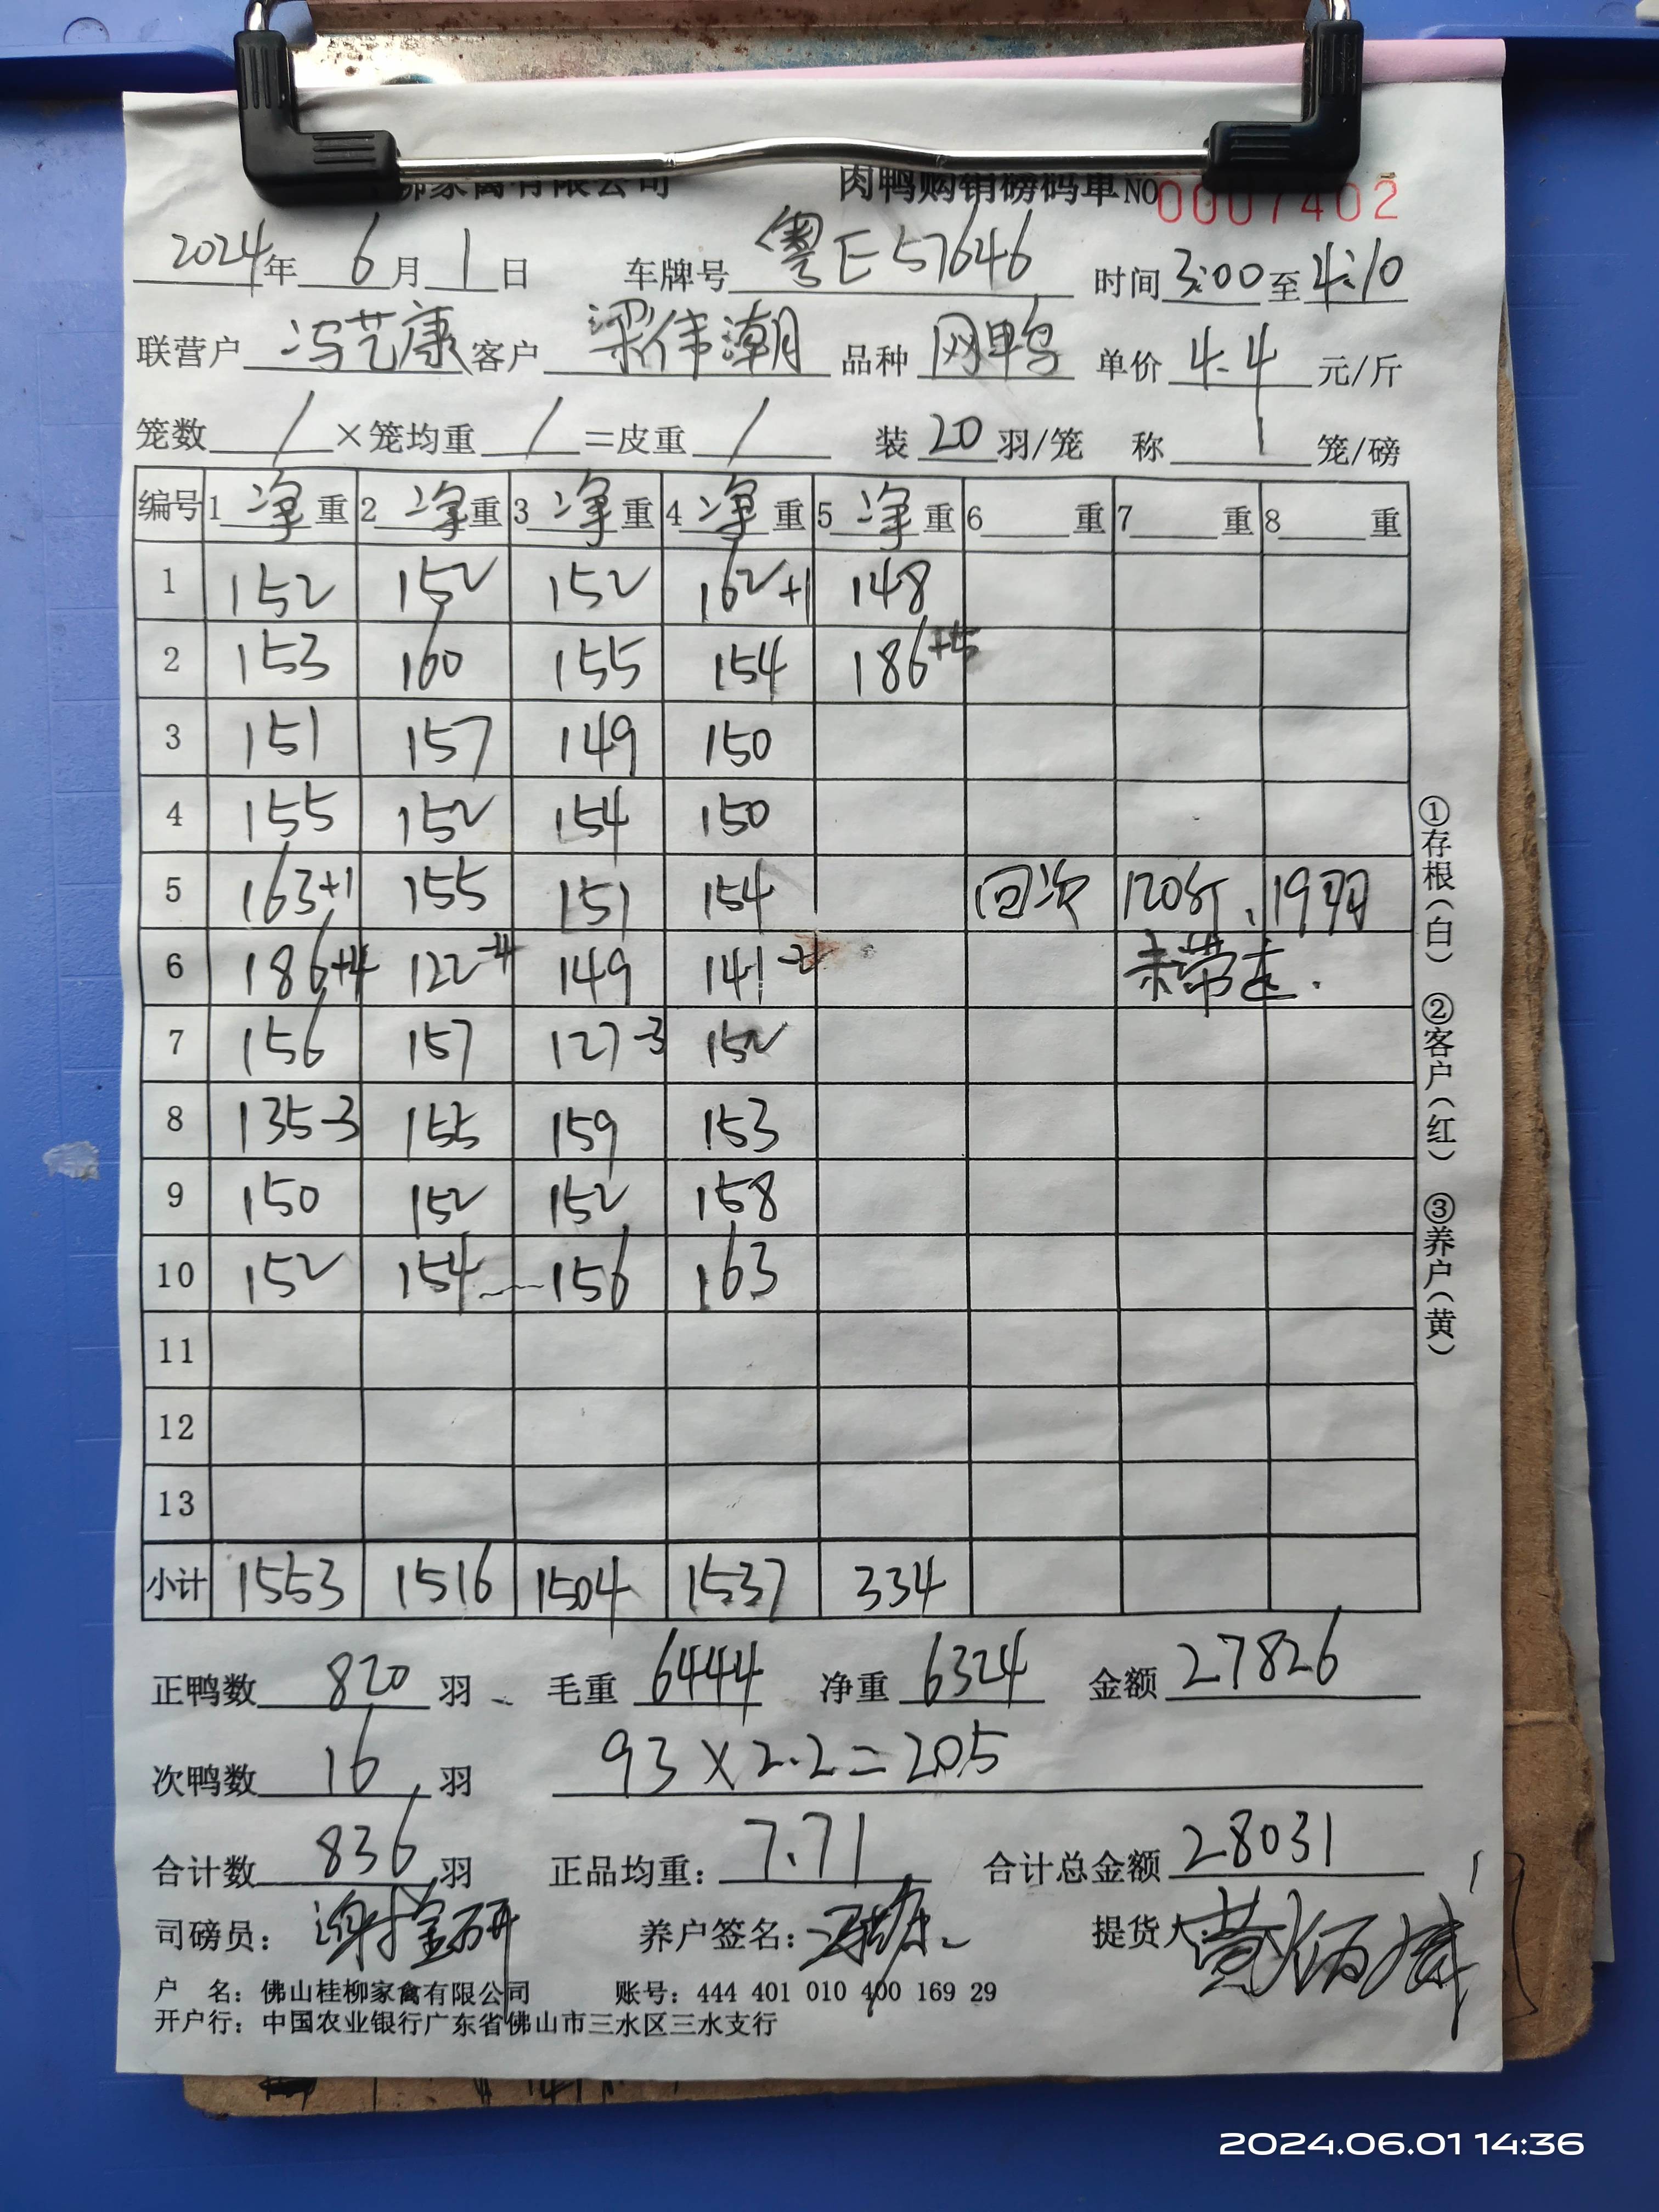 柳家禽有限公司 肉鸭购销磅码单 NO 0007402
2024年 6月 1日 车牌号 粤E57646 时间 3:00 至 4:10
联营户 冯艺康 客户 梁伟潮 品种 网鸭 单价 4.4 元/斤
笼数 / ×笼均重 / =皮重 / 装 20 羽/笼 称 1 笼/磅
编号 1 净 重 2 净 重 3 净 重 4 净 重 5 净 重 6 重 7 重 8 重
1 152 152 152 162+1 148
2 153 160 155 154 186+5
3 151 157 149 150
4 155 152 154 150
5 163+1 155 151 154 回次 120斤、19羽
6 186+4 122-4 149 141-2 未带走.
7 156 157 127-3 152
8 135-3 155 159 153
9 150 152 152 158
10 152 154 156 163
11
12
13
小计 1553 1516 1504 1537 334
正鸭数 820 羽 毛重 6444 净重 6324 金额 27826
次鸭数 16 羽 93×2.2=205
合计数 836 羽 正品均重: 7.71 合计总金额 28031
司磅员: 养户签名: 提货人
户 名: 佛山桂柳家禽有限公司 账号: 444 401 010 400 169 29
开户行: 中国农业银行广东省佛山市三水区三水支行
①存根(白) ②客户(红) ③养户(黄)
2024.06.01 14:36